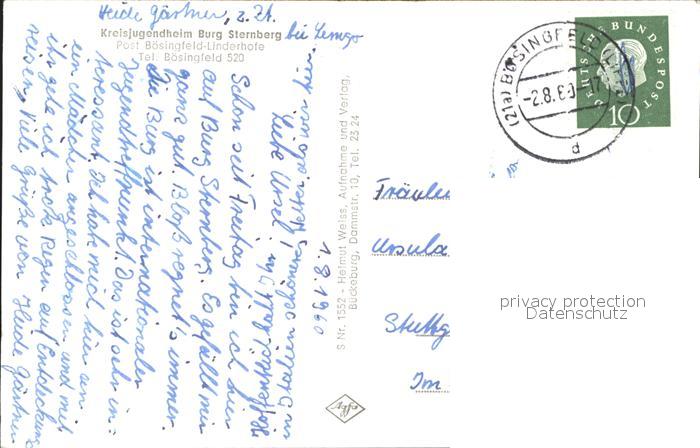 Heide Gärtner, z. Zt.
Kreisjugendheim Burg Sternberg
bei Lemgo
Post Bösingfeld-Linderhofe
Tel: Bösingfeld 520
1.8.1960
Liebe Ursel!
Schon seit Freitag bin ich hier
auf Burg Sternberg. Es gefällt mir
ganz gut. Bloß regnet's immer.
Die Burg ist internationaler
Jugendtreffpunkt. Das ist sehr in-
teressant. Ich habe mich hier an
ein Mädchen angeschlossen und mit
ihr gehe ich trotz Regen auf Entdeckungs
reisen. Viele Grüße von Heide Gärtner
schöneres Wetter als wir hier.
S Nr. 1552 - Helmut Weiss, Aufnahme und Verlag,
Bückeburg, Dammstr. 10, Tel. 23 24
Fräulei
Ursula
Stuttg
Im
(21a) BÖSINGFELD (LIPPE)
-2.8.60-17
d
DEUTSCHE BUNDESPOST
10
privacy protection
Datenschutz